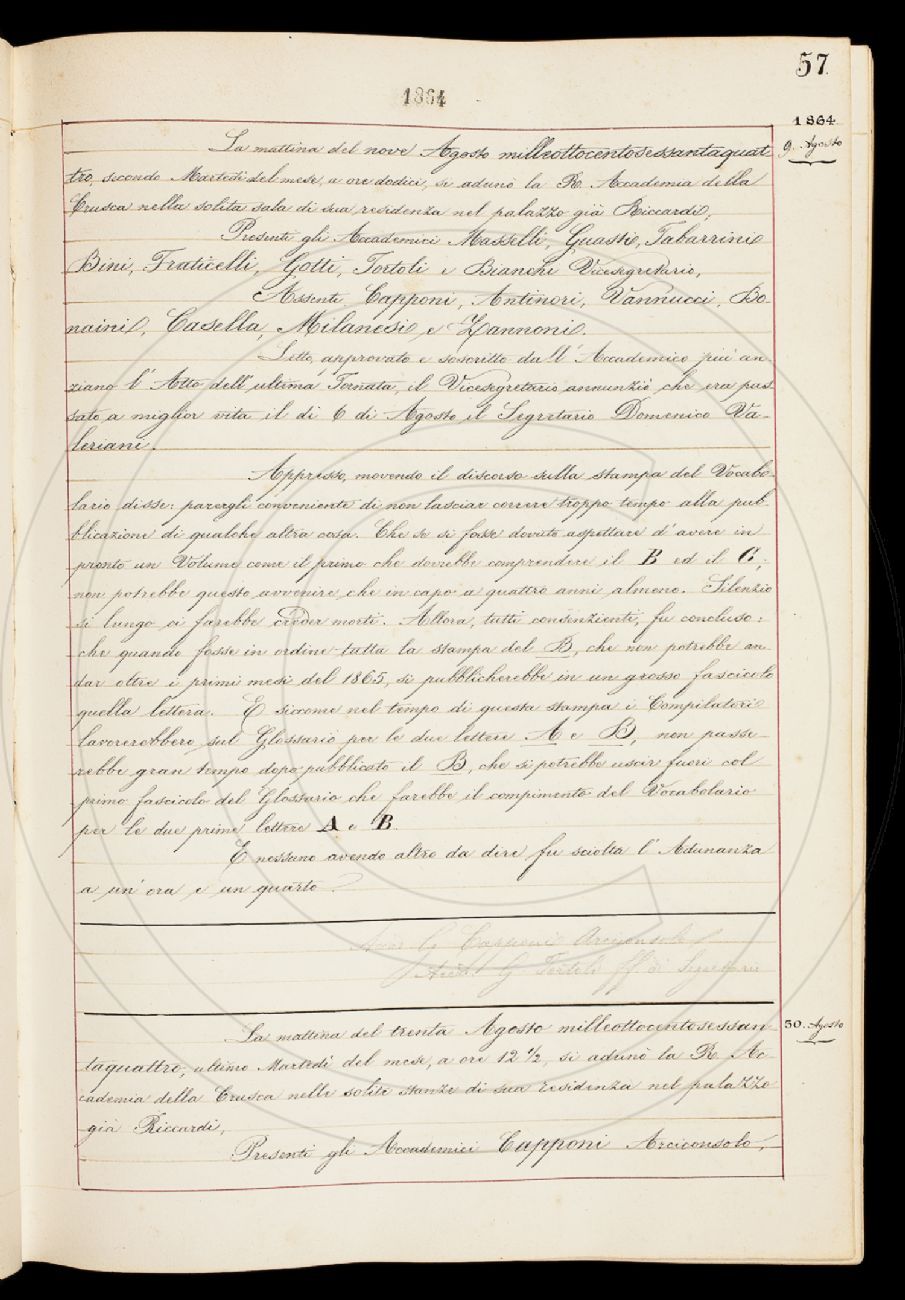 57
1864
1864
9. Agosto
La mattina del nove Agosto milleottocentosessantaquat
tro, secondo Martedì del mese, a ore dodici, si adunò la R. Accademia della
Crusca nella solita sala di sua residenza nel palazzo già Riccardi,
Presenti gli Accademici Masselli, Guasti, Tabarrini
Bini, Fraticelli, Gotti, Tortoli e Bianchi Vicesegretario,
Assenti Capponi, Antinori, Vannucci, Bo-
naini, Casella, Milanesi e Zannoni.
Letto, approvato e soscritto dall'Accademico più an-
ziano l'Atto dell'ultima Tornata, il Vicesegretario annunziò che era pas
sato a miglior vita il dì 6 di Agosto il Segretario Domenico Va-
leriani.
Appresso, movendo il discorso sulla stampa del Vocabo-
lario disse: parergli conveniente di non lasciar correre troppo tempo alla pub
blicazione di qualche altra cosa. Che se si fosse dovuto aspettare d'avere in
pronto un Volume come il primo che dovrebbe comprendere il B ed il C,
non potrebbe questo avvenire che in capo a quattro anni almeno. Silenzio
sì lungo ci farebbe creder morti. Allora, tutti consenzienti, fu concluso:
che quando fosse in ordine tutta la stampa del B, che non potrebbe an-
dar oltre i primi mesi del 1865, si pubblicherebbe in un grosso fascicolo
quella lettera. E siccome nel tempo di questa stampa i Compilatori
lavorerebbero sul Glossario per le due lettere A e B, non passe-
rebbe gran tempo dopo pubblicato il B, che si potrebbe uscir fuori col
primo fascicolo del Glossario che farebbe il compimento del Vocabolario
per le due prime lettere A e B.
E nessuno avendo altro da dire fu sciolta l'Adunanza
a un'ora e un quarto.
G. Capponi Arciconsolo
Accad. G. Tortoli ff. di Segretario
30. Agosto
La mattina del trenta Agosto milleottocentosessan-
taquattro, ultimo Martedì del mese, a ore 12 1/2, si adunò la R. Ac-
cademia della Crusca nelle solite stanze di sua residenza nel palazzo
già Riccardi,
Presenti gli Accademici Capponi Arciconsolo,